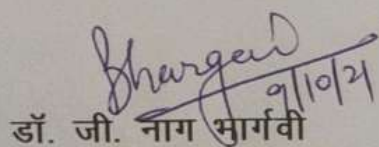 Bhargavi
9/10/21
डॉ. जी. नाग भार्गवी